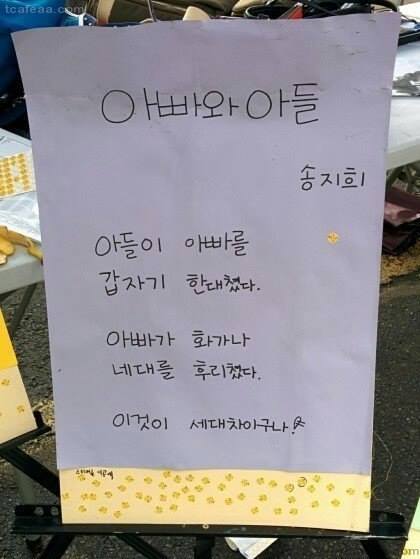 tcafeaa.com
아빠와 아들
송지희
아들이 아빠를
갑자기 한대쳤다.
아빠가 화가나
네대를 후리쳤다.
이것이 세대차이구나!